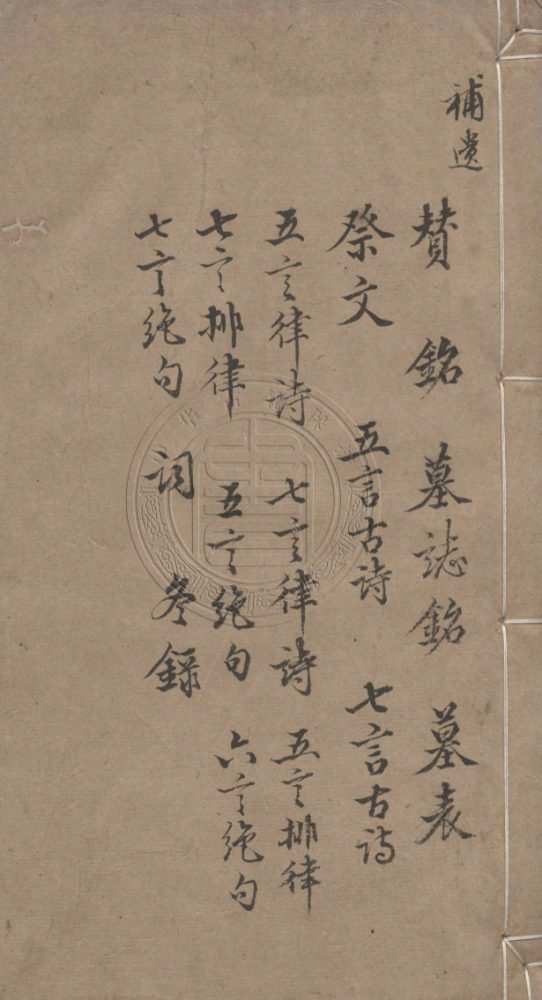 補遺
贊 銘 墓誌銘 墓表
祭文 五言古詩 七言古詩
五言律詩 七言律詩 五言排律
七言排律 五言絶句 六言絶句
七言絶句 詞 冬錄